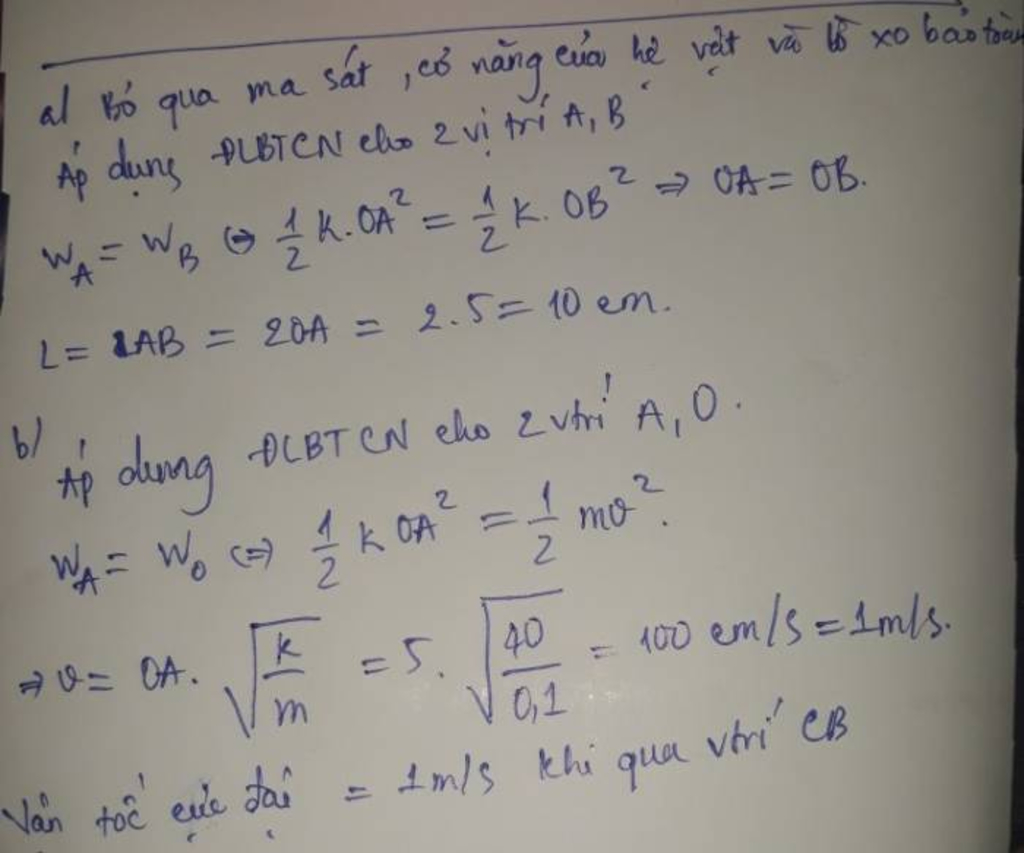 a/ Bỏ qua ma sát, cơ năng của hệ vật và lò xo bảo toàn
Áp dụng ĐLBTCN cho 2 vị trí A, B
W_A = W_B ⇔ 1/2 k.OA² = 1/2 k.OB² ⇒ OA = OB.
L = AB = 2OA = 2.5 = 10 cm.
b/ Áp dụng ĐLBTCN cho 2 vtrí A, O.
W_A = W_O ⇔ 1/2 k OA² = 1/2 mv².
⇒ v = OA.√(k/m) = 5.√(40/0,1) = 100 cm/s = 1m/s.
Vận tốc cực đại = 1m/s khi qua vtrí CB